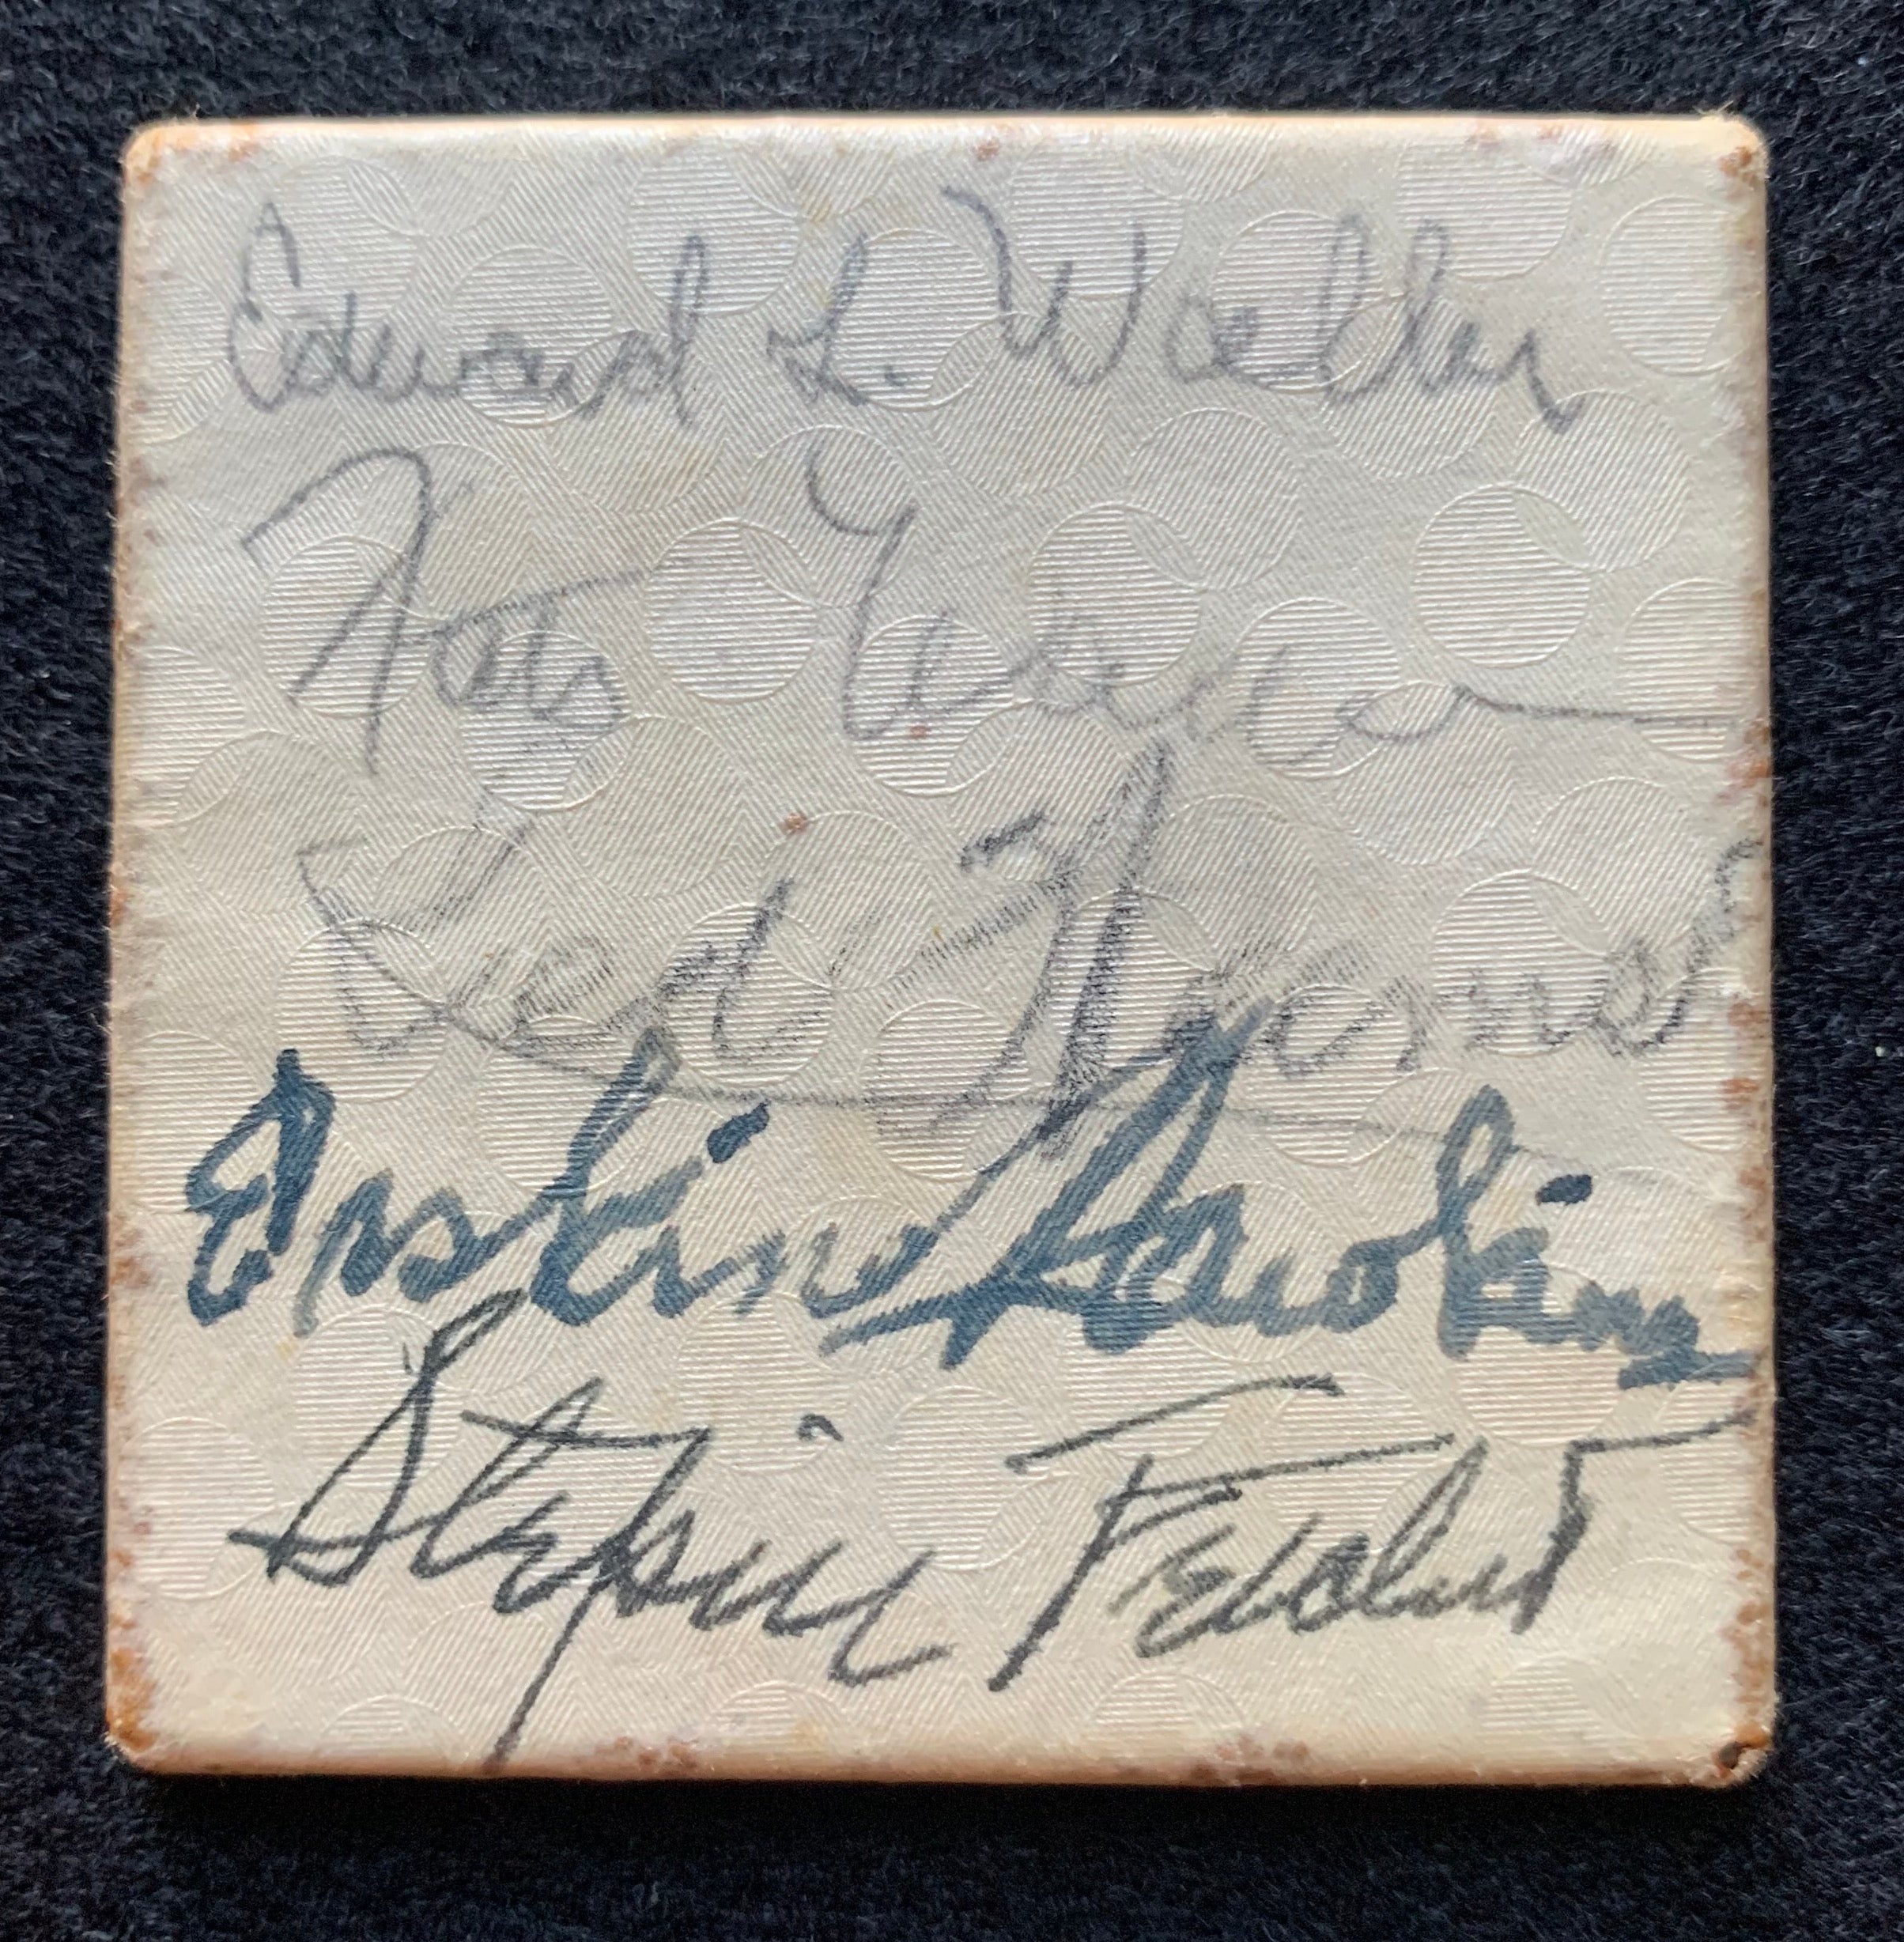 Edward L. Waller
Fats Waller
Red Norvo
Erskine Hawkins
Stepin Fetchit